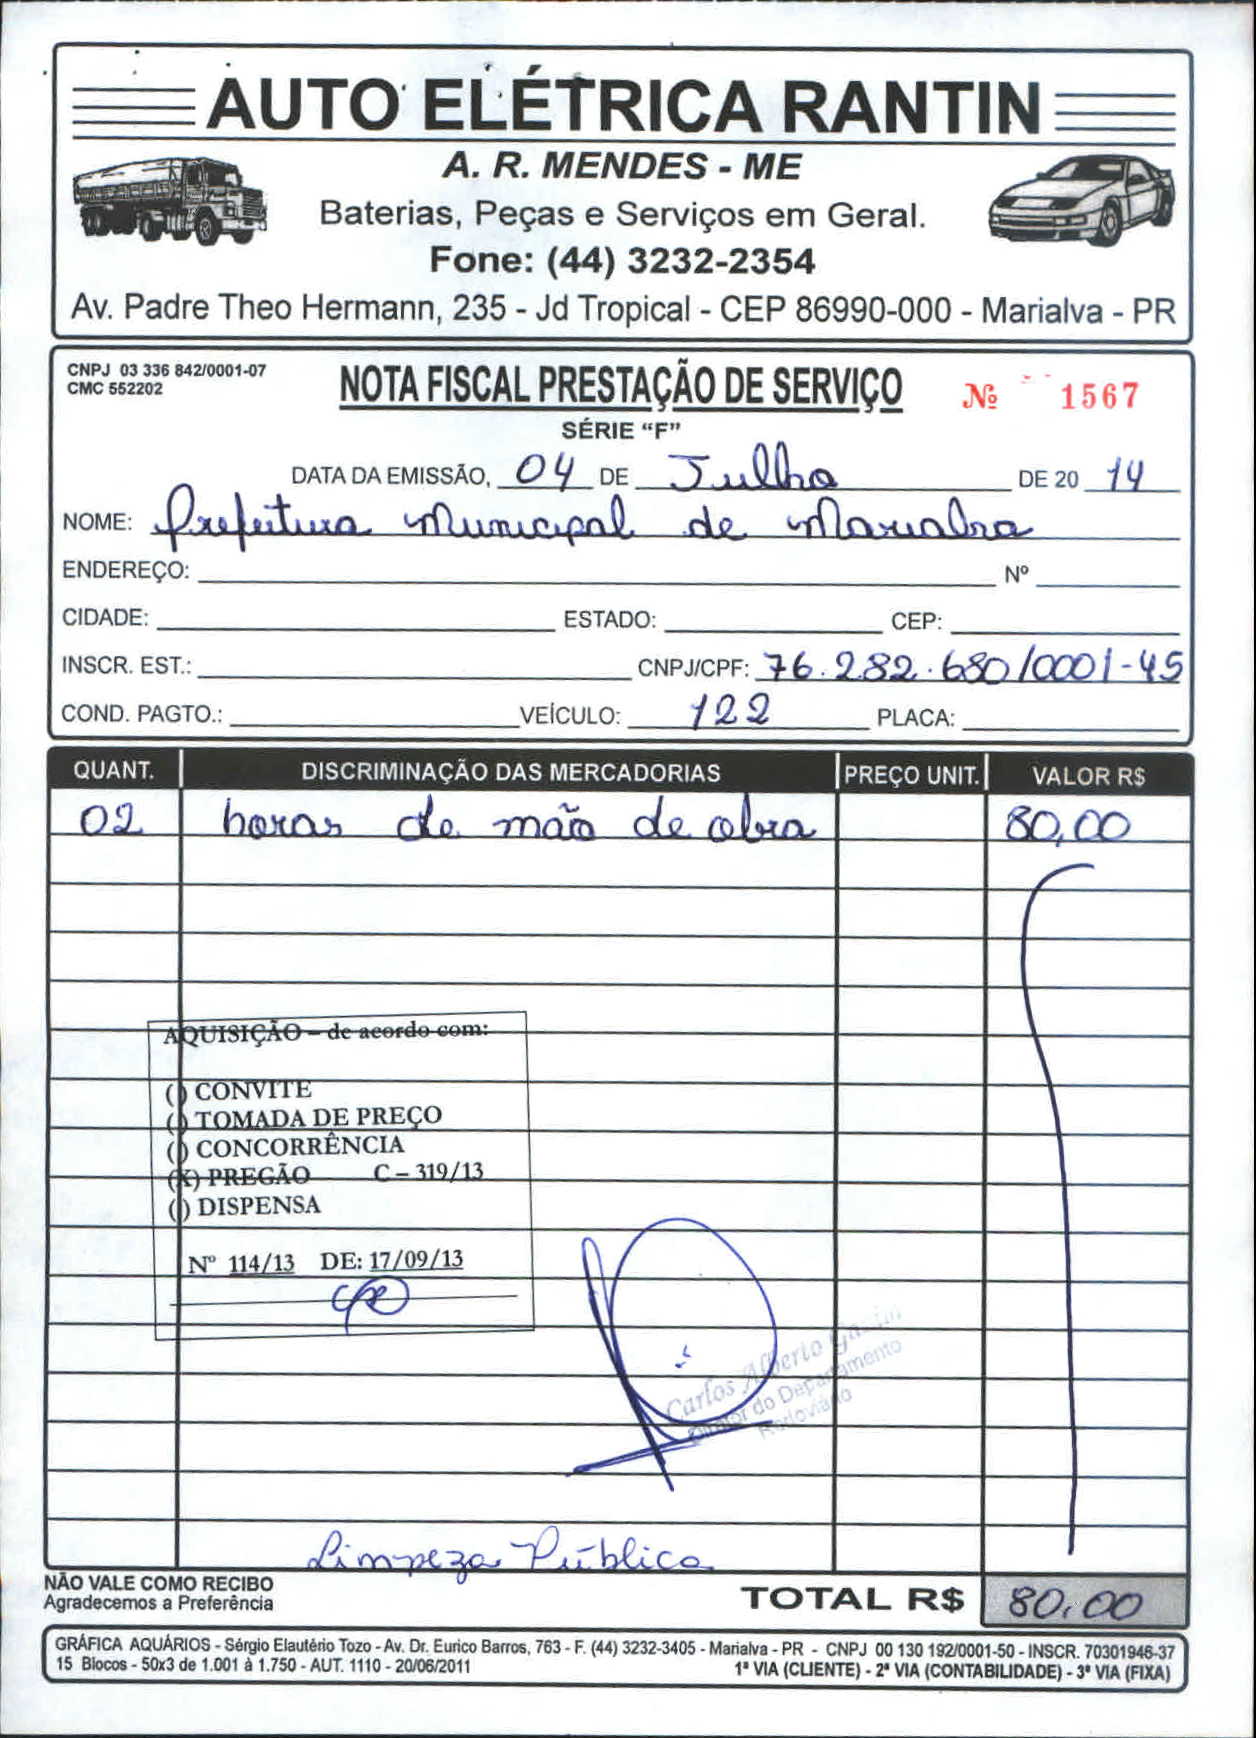 AUTO ELÉTRICA RANTIN
A. R. MENDES - ME
Baterias, Peças e Serviços em Geral.
Fone: (44) 3232-2354
Av. Padre Theo Hermann, 235 - Jd Tropical - CEP 86990-000 - Marialva - PR
CNPJ 03 336 842/0001-07
CMC 552202
NOTA FISCAL PRESTAÇÃO DE SERVIÇO
Nº 1567
SÉRIE “F”
DATA DA EMISSÃO, 04 DE Julho DE 20 14
NOME: Prefeitura Municipal de Marialva
ENDEREÇO: Nº
CIDADE: ESTADO: CEP:
INSCR. EST.: CNPJ/CPF: 76.282.680/0001-45
COND. PAGTO.: VEÍCULO: 122 PLACA:
QUANT. DISCRIMINAÇÃO DAS MERCADORIAS PREÇO UNIT. VALOR R$
02 horas de mão de obra 80,00
AQUISIÇÃO – de acordo com:
( ) CONVITE
( ) TOMADA DE PREÇO
( ) CONCORRÊNCIA
(X) PREGÃO C – 319/13
( ) DISPENSA
Nº 114/13 DE: 17/09/13
Carlos Alberto
Diretor do Departamento
Rodoviário
Limpeza Pública
NÃO VALE COMO RECIBO
Agradecemos a Preferência
TOTAL R$ 80,00
GRÁFICA AQUÁRIOS - Sérgio Elautério Tozo - Av. Dr. Eurico Barros, 763 - F. (44) 3232-3405 - Marialva - PR - CNPJ 00 130 192/0001-50 - INSCR. 70301946-37
15 Blocos - 50x3 de 1.001 à 1.750 - AUT. 1110 - 20/06/2011
1ª VIA (CLIENTE) - 2ª VIA (CONTABILIDADE) - 3ª VIA (FIXA)